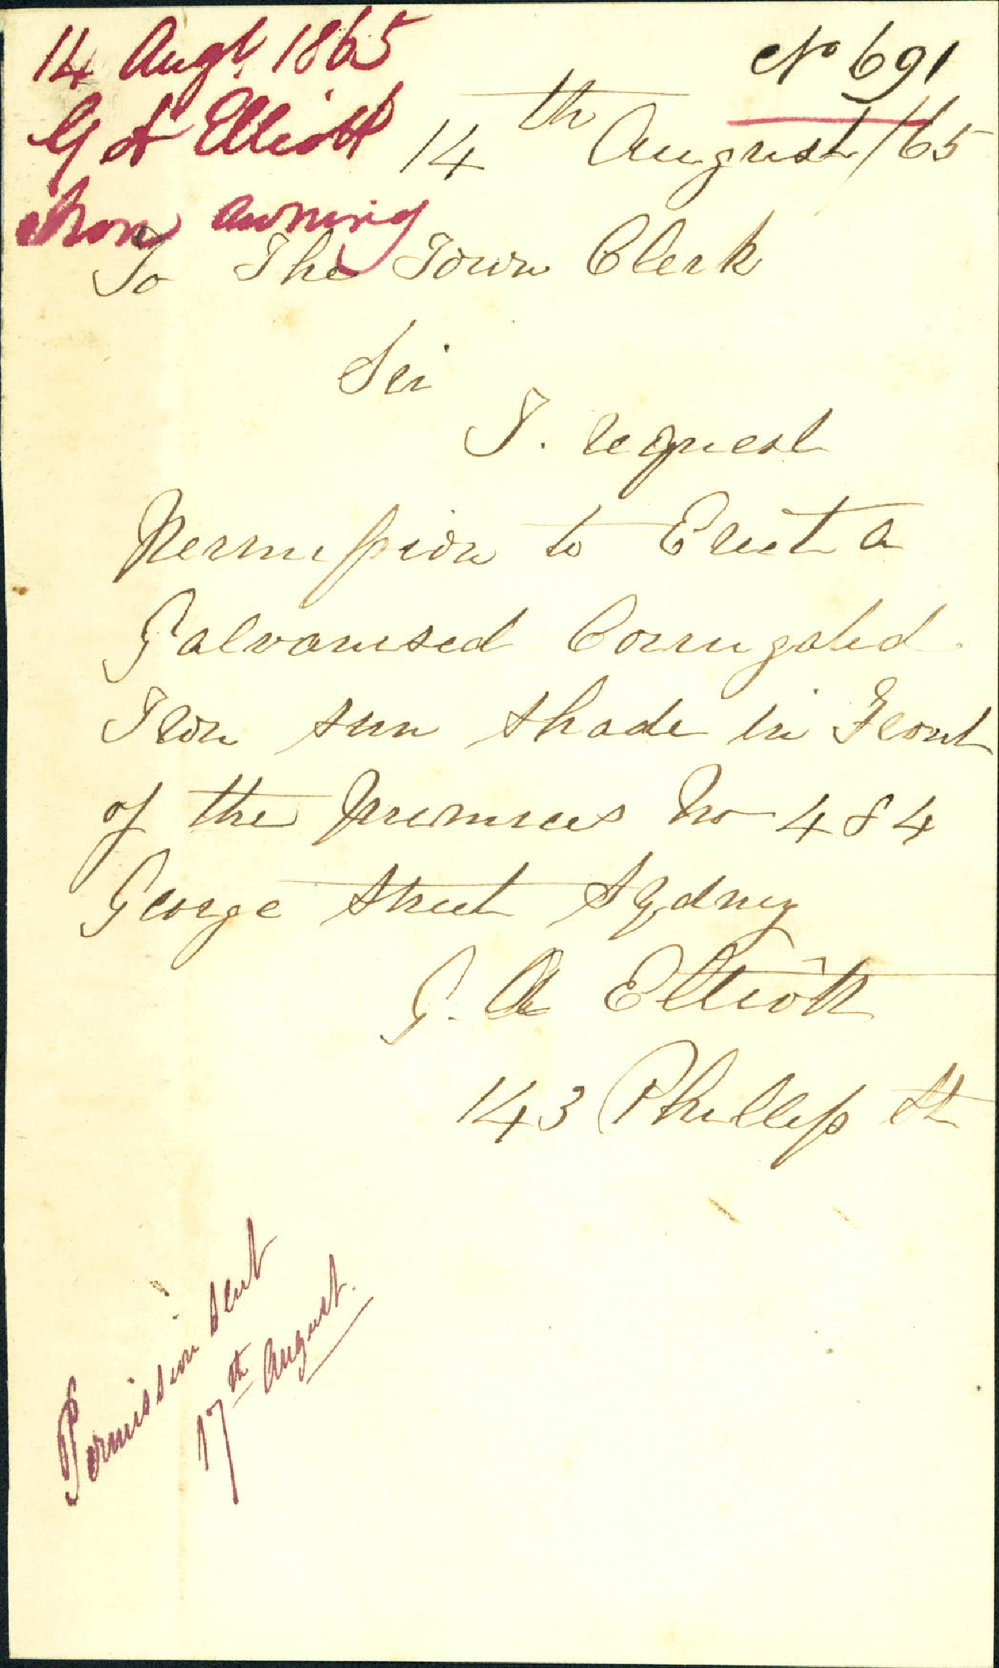 14 Augt. 1865
G A Elliott
Iron awning
No 691
14th August/65
To The Town Clerk
Sir
I. request
Permission to Erect a
Galvanised Corrugated
Iron sun shade in Front
of the Premises No 484
George Street Sydney
G. A Elliott
143 Phillip St
Permission sent
17th August.